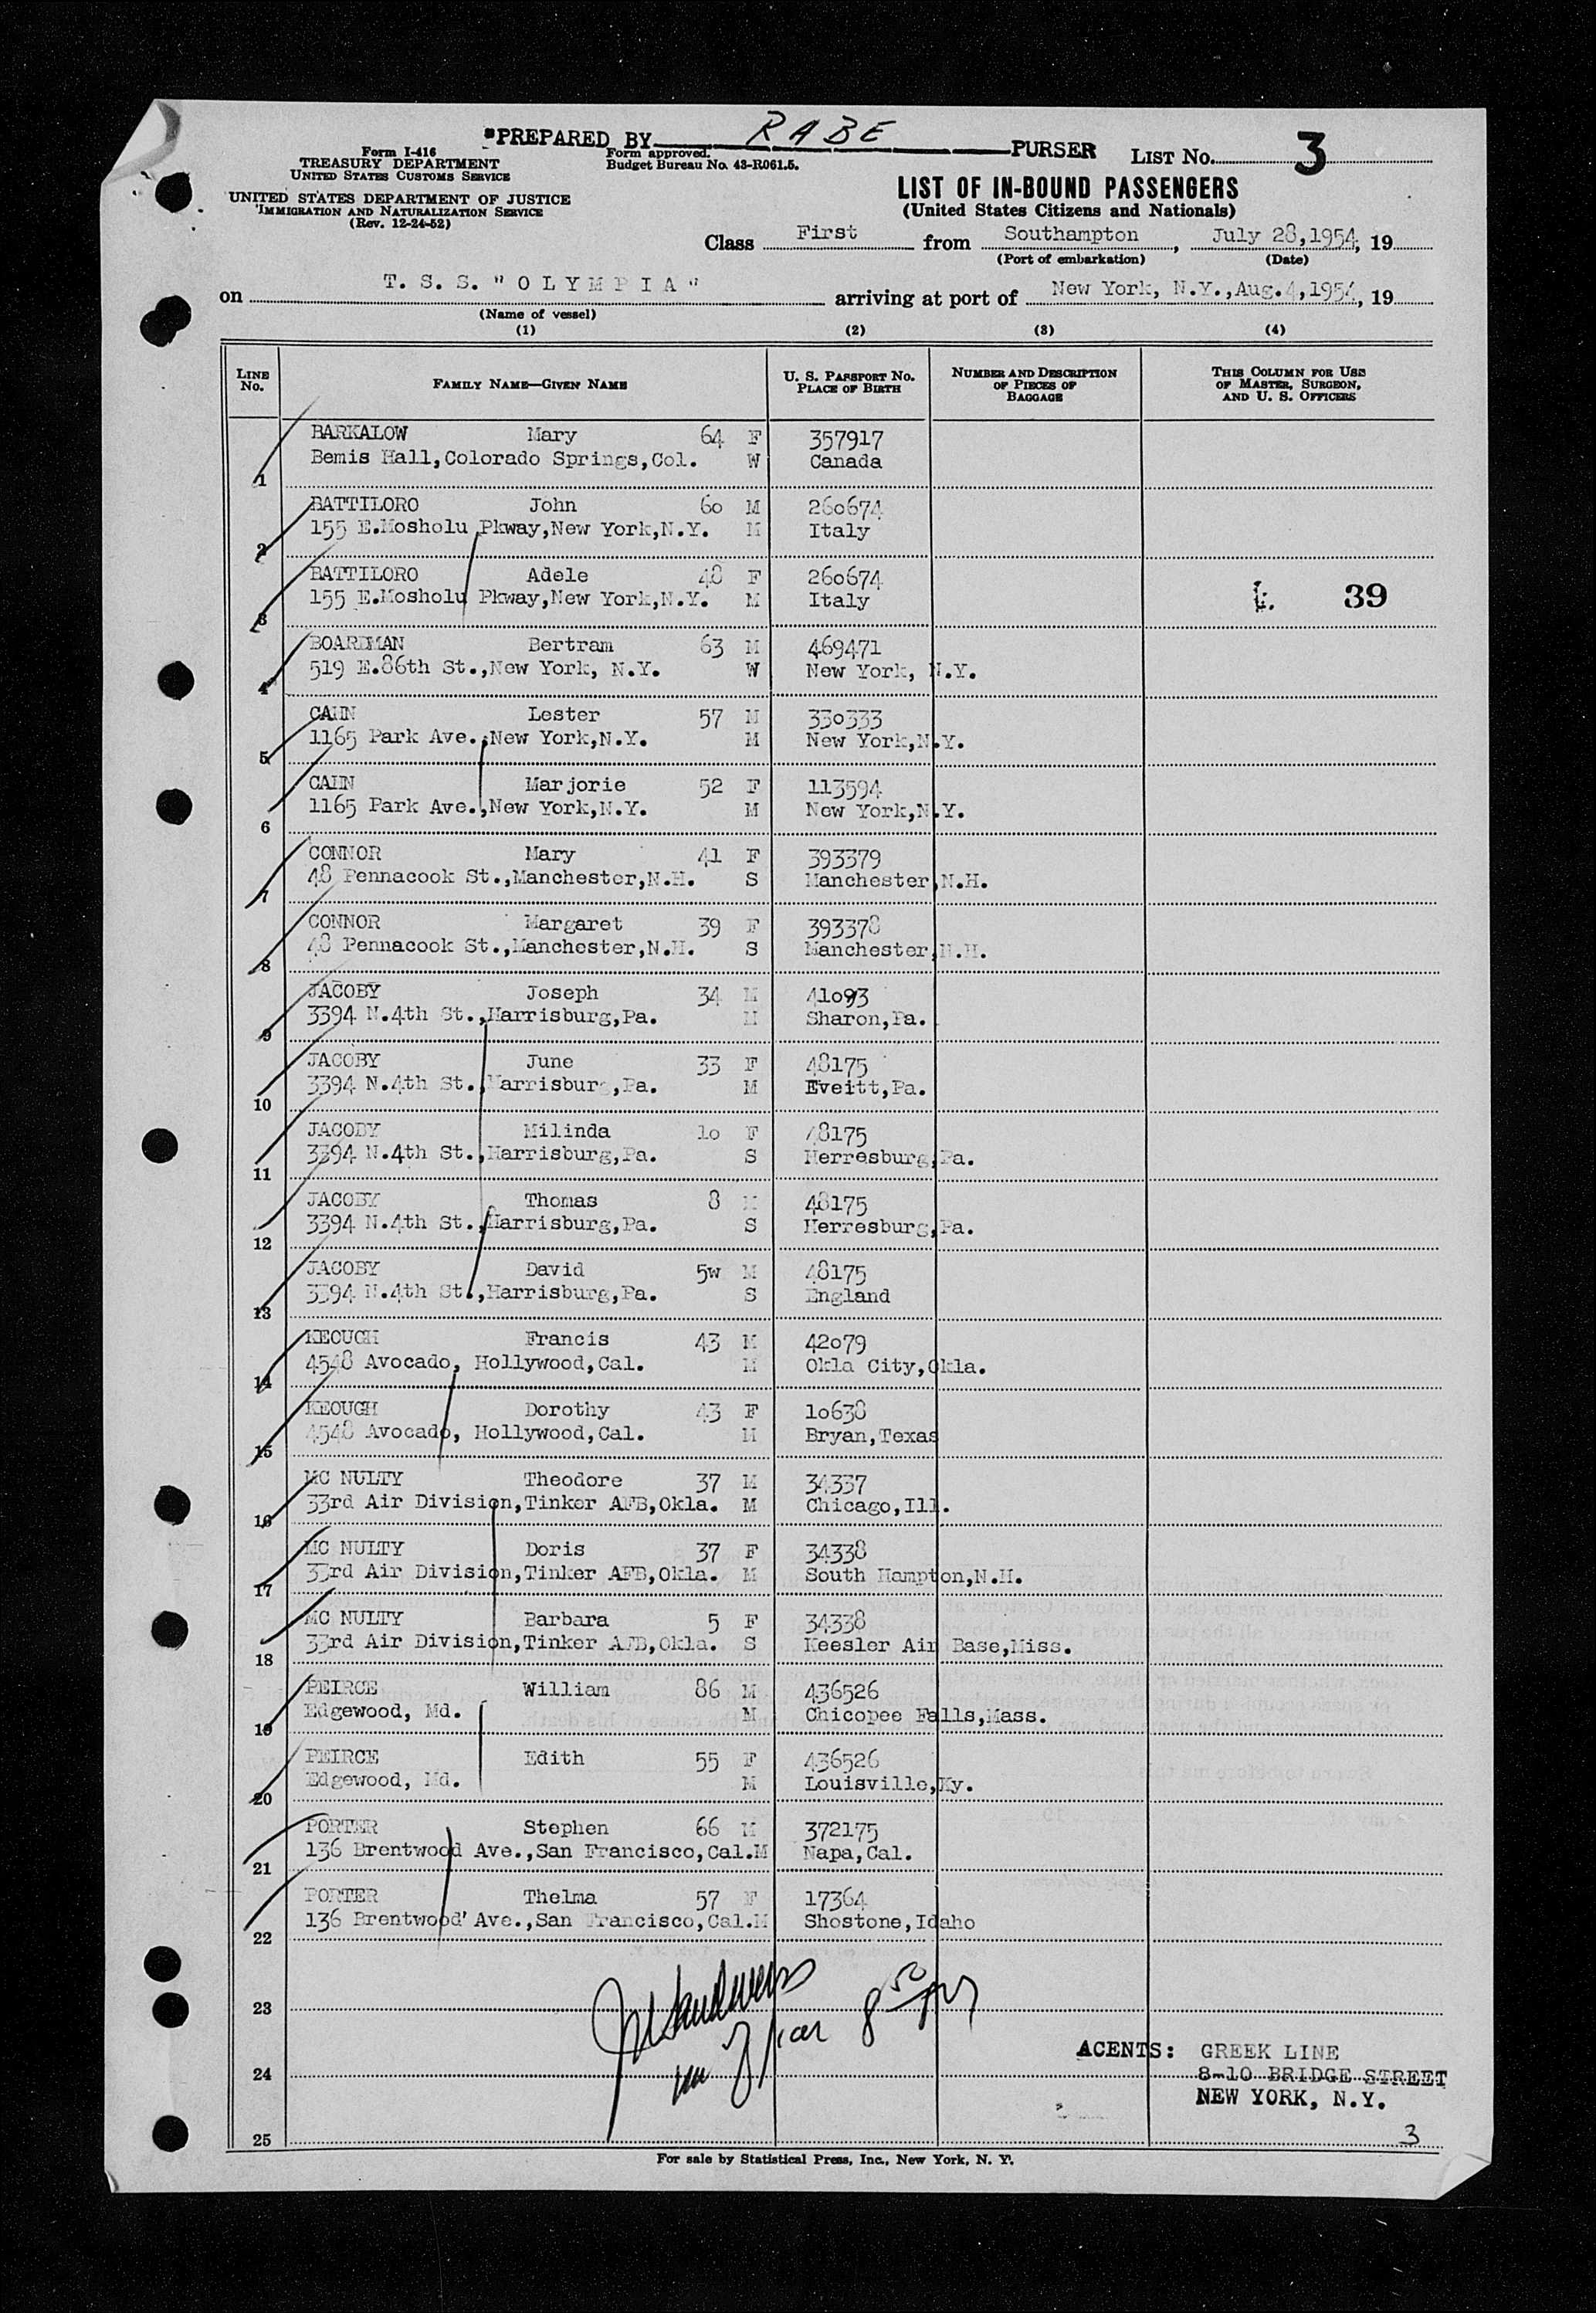 "PREPARED BY RABE PURSER LIST No. 3
Form I-416
TREASURY DEPARTMENT
UNITED STATES CUSTOMS SERVICE
Form approved.
Budget Bureau No. 43-R061.5.
UNITED STATES DEPARTMENT OF JUSTICE
IMMIGRATION AND NATURALIZATION SERVICE
(Rev. 12-24-52)
LIST OF IN-BOUND PASSENGERS
(United States Citizens and Nationals)
Class First from Southampton, July 28,1954, 19
(Port of embarkation) (Date)
on T. S. S. "OLYMPIA" arriving at port of New York, N.Y.,Aug.4,1954, 19
(Name of vessel)
(1) (2) (3) (4)
LINE No. FAMILY NAME—GIVEN NAME U. S. PASSPORT No. PLACE OF BIRTH NUMBER AND DESCRIPTION OF PIECES OF BAGGAGE THIS COLUMN FOR USE OF MASTER, SURGEON, AND U. S. OFFICERS
BARKALOW Mary 64 F 357917
Bemis Hall,Colorado Springs,Col. W Canada
1
BATTILORO John 60 M 260674
155 E.Mosholu Pkway,New York,N.Y. M Italy
2
BATTILORO Adele 48 F 260674
155 E.Mosholu Pkway,New York,N.Y. M Italy 39
3
BOARDMAN Bertram 63 M 469471
519 E.86th St.,New York, N.Y. W New York, N.Y.
4
CAIN Lester 57 M 330333
1165 Park Ave.,New York,N.Y. M New York,N.Y.
5
CAIN Marjorie 52 F 113594
1165 Park Ave.,New York,N.Y. M New York,N.Y.
6
CONNOR Mary 41 F 393379
48 Pennacook St.,Manchester,N.H. S Manchester,N.H.
7
CONNOR Margaret 39 F 393378
48 Pennacook St.,Manchester,N.H. S Manchester,N.H.
8
JACOBY Joseph 34 M 41093
3394 N.4th St.,Harrisburg,Pa. M Sharon,Pa.
9
JACOBY June 33 F 48175
3394 N.4th St.,Harrisburg,Pa. M Eveitt,Pa.
10
JACOBY Milinda 10 F 48175
3394 N.4th St.,Harrisburg,Pa. S Herresburg,Pa.
11
JACOBY Thomas 8 M 48175
3394 N.4th St.,Harrisburg,Pa. S Herresburg,Pa.
12
JACOBY David 5w M 48175
3394 N.4th St.,Harrisburg,Pa. S England
13
KEOUGH Francis 43 M 42079
4548 Avocado, Hollywood,Cal. M Okla City,Okla.
14
KEOUGH Dorothy 43 F 10638
4548 Avocado, Hollywood,Cal. M Bryan,Texas
15
MC NULTY Theodore 37 M 34337
33rd Air Division,Tinker AFB,Okla. M Chicago,Ill.
16
MC NULTY Doris 37 F 34338
33rd Air Division,Tinker AFB,Okla. M South Hampton,N.H.
17
MC NULTY Barbara 5 F 34338
33rd Air Division,Tinker AFB,Okla. S Keesler Air Base,Miss.
18
PEIRCE William 86 M 436526
Edgewood, Md. M Chicopee Falls,Mass.
19
PEIRCE Edith 55 F 436526
Edgewood, Md. M Louisville,Ky.
20
PORTER Stephen 66 M 372175
136 Brentwood Ave.,San Francisco,Cal.M Napa,Cal.
21
PORTER Thelma 57 F 17364
136 Brentwood' Ave.,San Francisco,Cal.M Shostone,Idaho
22
23
ACENTS: GREEK LINE
24 8-10 BRIDGE STREET
NEW YORK, N.Y.
25 3
For sale by Statistical Press, Inc., New York, N. Y.